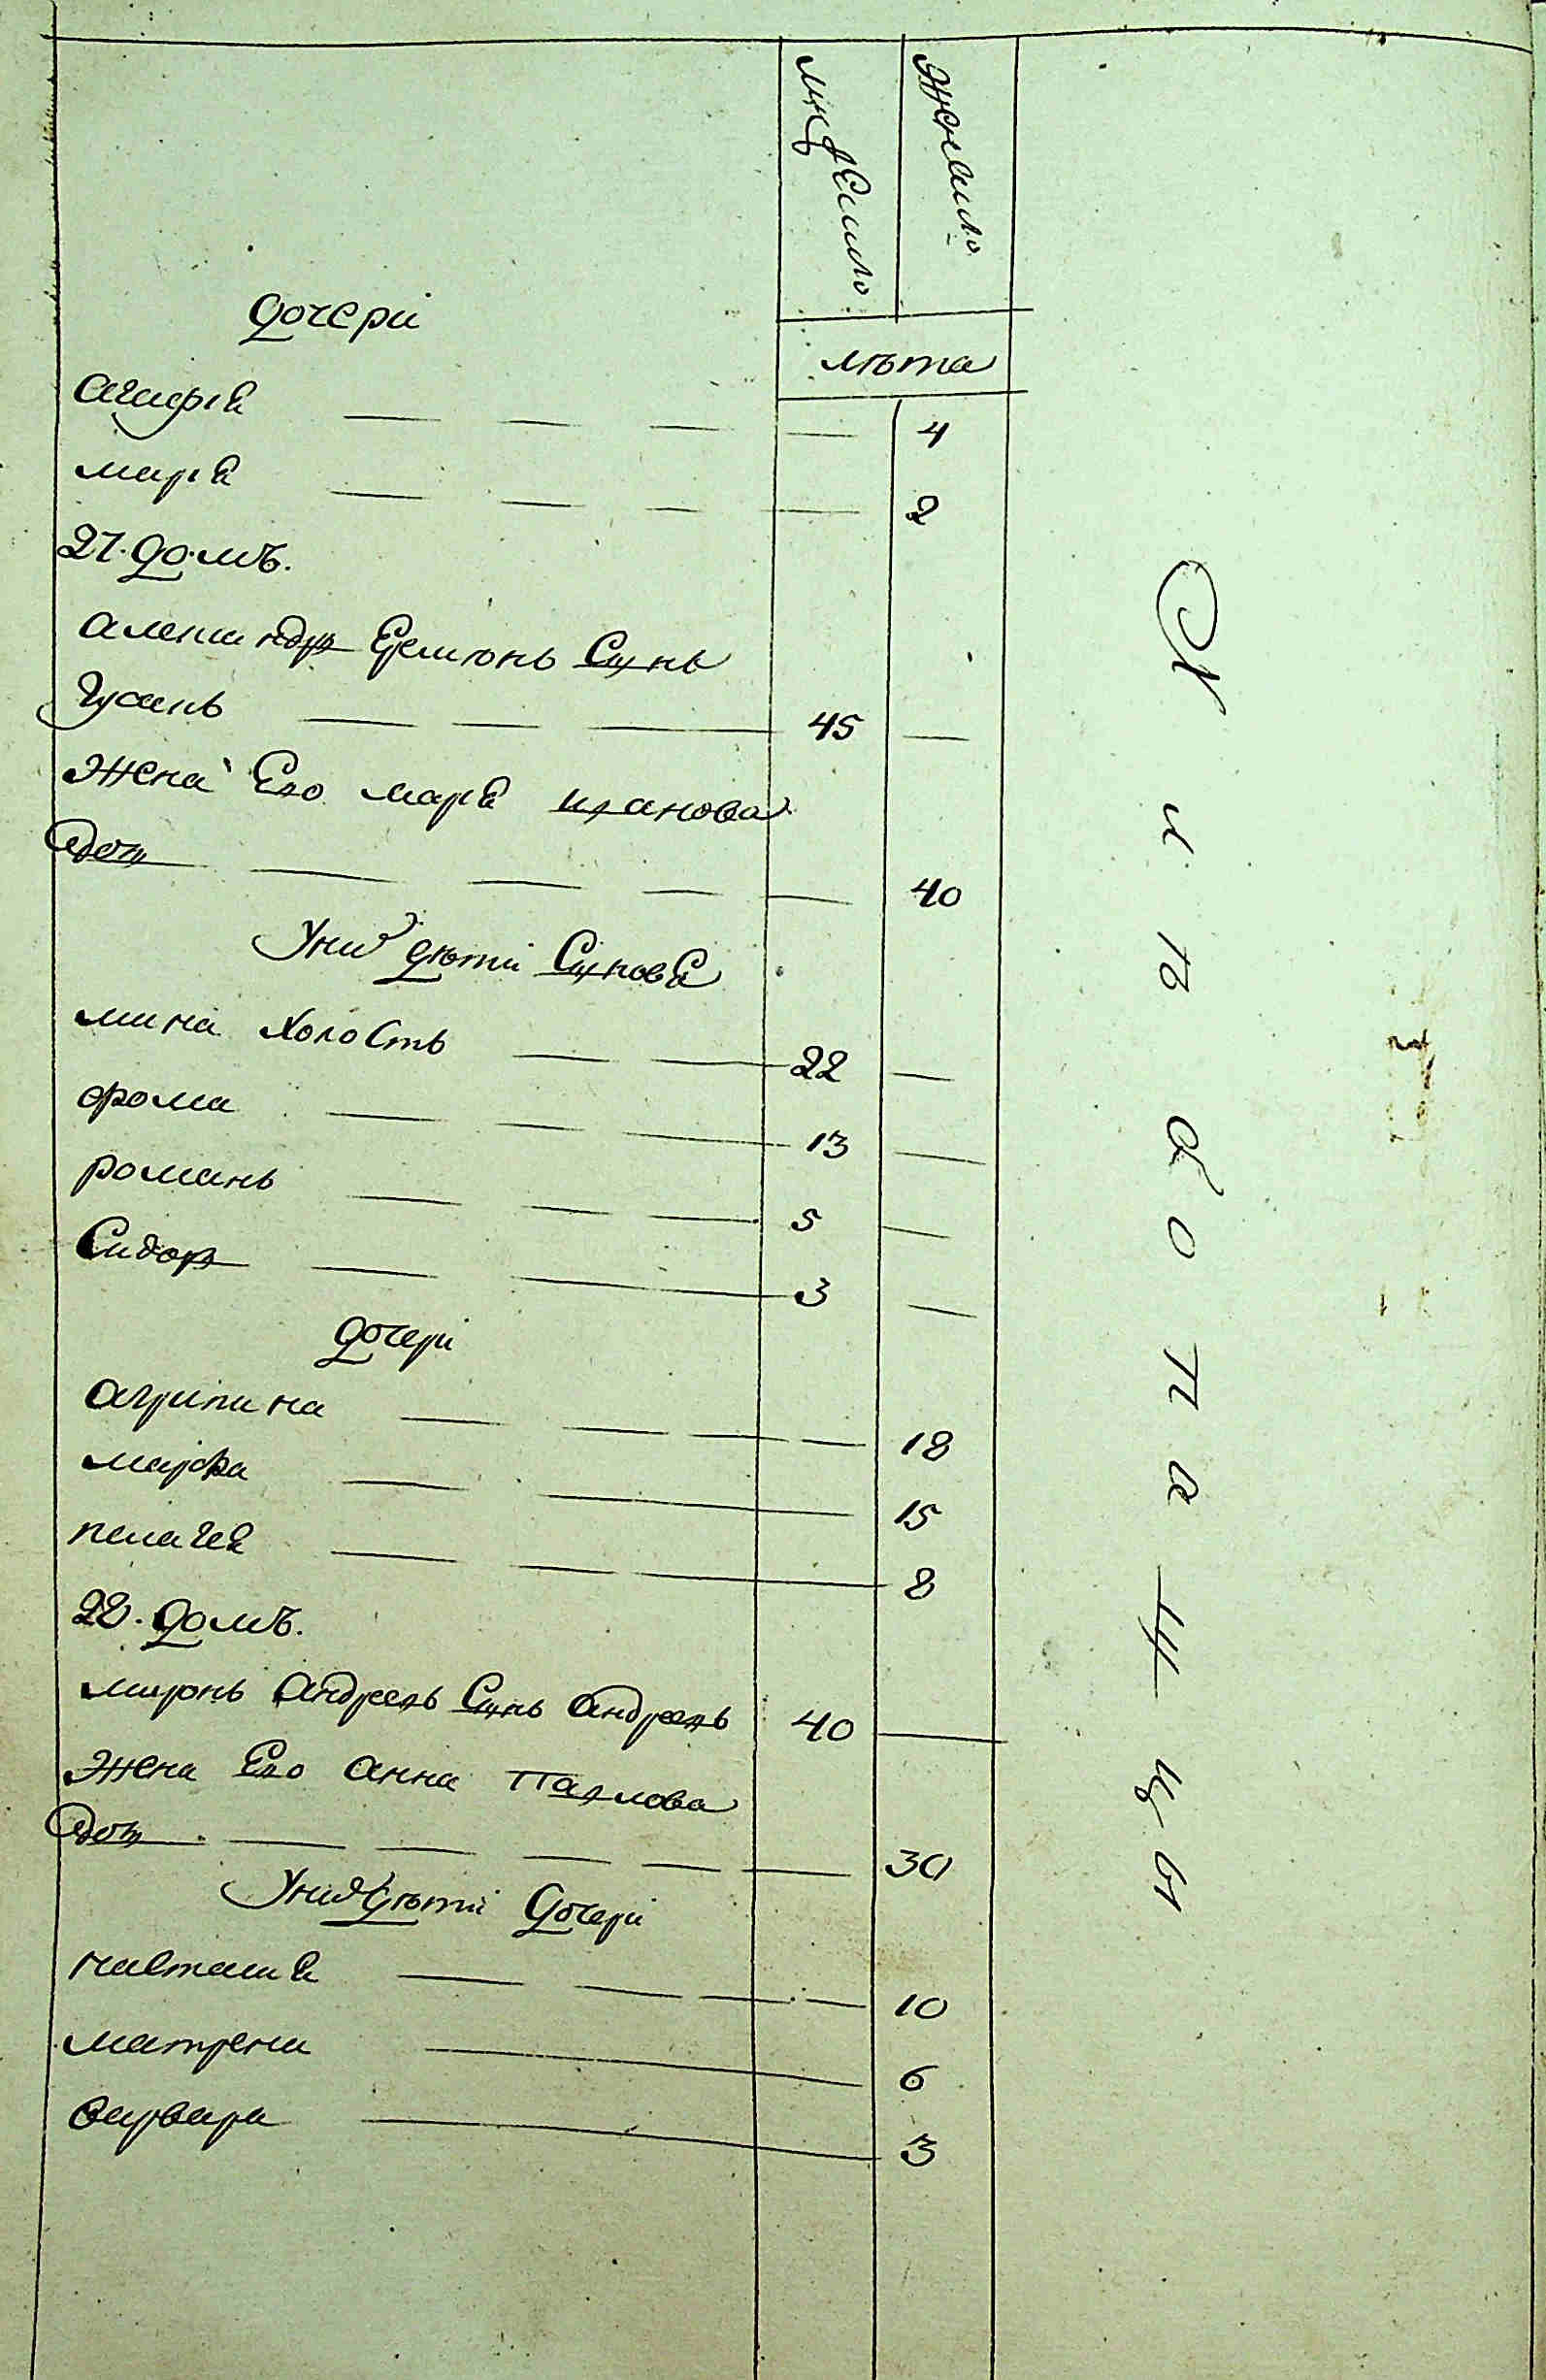 мужескаго
женскаго
лѣта
дочери
агафиѧ 4
мариѧ 2
27. домъ.
александръ Семионъ Сынъ
Гусанъ 45
Жена Его мариѧ иванова
дочь 40
У них дѣти Сыновѧ
мина холостъ 22
фома 13
романъ 5
Сидоръ 3
дочери
агрипина 18
марфа 15
пелагеѧ 8
28. домъ.
миронъ андреевъ Сынъ андреевъ 40
Жена Его анна Павлова
дочь 30
У них дѣти дочери
настасиѧ 10
матрена 6
варвара 3